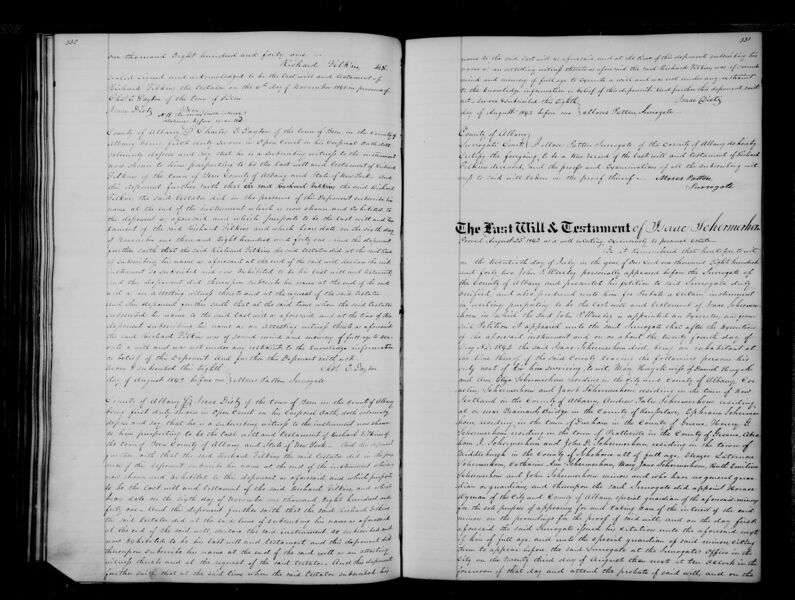 330
one thousand Eight hundred and forty one —
Richard Filkins LS.
sealed signed and acknowledged to be the last will and testament of
Richard Filkins the testator on the 6th day of November 1841 in presence of
Chas E. Dayton of the town of Bern
Isaac Dietz Bern
County of Albany Charles E Dayton of the town of Bern in the County of
Albany being first duly sworn in Open Court on his Corporal Oath doth
solemnly depose and say that he is a subscribing witness to the instrument
now shown to him purporting to be the last will and testament of Richard
Filkins of the town of Bern County of Albany and State of New York And
this deponent further saith that the said Richard Filkins the said Richard
Filkins the said testator did in the presence of this Deponent subscribe his
name at the end of the instrument which is now shown and exhibited to
this deponent as aforesaid and which purports to be the last will and tes
tament of the said Richard Filkins and which bears date on the sixth day
of November one thousand Eight hundred and forty one And this deponent
further saith that the said Richard Filkins the said testator did at the time
of subscribing his name as aforesaid at the end of the said will declare the said
instrument so subscribed and now exhibited to be his last will and testament
and this deponent did thereupon subscribe his name at the end of the said
will as an attesting witness thereto and at the request of the said testator
And this deponent further saith that at the said time when the said testator
subscribed his name to the said last will as aforesaid and at the time of this
deponent subscribing his name as an attesting witness thereto as aforesaid
the said Richard Filkins was of sound mind and memory of full age to exe
cute a will and was not under any restraint to the knowledge information
or belief of this Deponent And further this Deponent saith not
Sworn & subscribed this Eighth Chas E. Dayton
day of August 1842 before me Moses Patten Surrogate
County of Albany Isaac Dietz of the town of Bern in the county of Albany
being first duly sworn in Open Court on his Corporal Oath doth solemnly
depose and say that he is a subscribing witness to the instrument now shown
to him purporting to be the last will and testament of Richard Filkins of
the town of Bern County of Albany and State of New York And this deponent
further saith that the said Richard Filkins the said testator did in the pres
ence of this deponent subscribe his name at the end of the instrument which
now shown and exhibited to this deponent as aforesaid and which purports
to be the last will and testament of the said Richard Filkins and which
bears date on the sixth day of November one thousand Eight hundred and
forty one And this deponent further saith that the said Richard Filkins
the said testator did at the time of subscribing his name as aforesaid
at the end of the said will declare the said instrument so subscribed and
now exhibited to be his last will and testament and this deponent did
thereupon subscribe his name at the end of the said will as an attesting
witness thereto and at the request of the said testator And this deponent
further saith that at the said time when the said testator subscribed his
331
name to the said last will as aforesaid and at the time of this deponent subscribing his
name as an attesting witness thereto as aforesaid the said Richard Filkins was of sound
mind and memory of full age to execute a will and was not under any restraint
to the knowledge information or belief of this deponent And further this deponent saith
not Sworn & subscribed this Eighth Isaac Dietz
day of August 1842 before me Moses Patten Surrogate
County of Albany
Surrogate Court I Moses Patten Surrogate of the County of Albany do hereby
Certify the foregoing to be a true record of the last will and testament of Richard
Filkins deceased and the proof and Examination of the subscribing wit
nesses to said will taken on the proof thereof — Moses Patten
Surrogate
The Last Will & Testament of Isaac Schermerhorn
Proved August 23d 1842 as a will relating exclusively to personal estate
Be it remembered that heretofore to wit
on the twentieth day of July in the year of our Lord one thousand Eight hundred
and forty two John P. Wemley personally appeared before the Surrogate of
the County of Albany and presented his petition to said Surrogate duly
verified and also produced with him for Probate a certain instrument
in writing purporting to be the last will and testament of Isaac Schermer
horn in which the said John P. is appointed an Executor and from
said Petition it appeared unto the said Surrogate that after the Execution
of the aforesaid instrument and on or about the twenty fourth day of
May AD 1842 the said Isaac Schermerhorn died being an inhabitant at
the time thereof of the said County leaving the following persons his
only next of kin him surviving to wit, Mary wife of Daniel
and Ann Eliza Schermerhorn residing in the City and County of Albany, Cor
nelius Schermerhorn and Jacob Schermerhorn residing in the town of New
Scotland in the County of Albany, Andrew Schermerhorn residing
at or near Bridge in the County of Ephraim Schermer
horn, residing in the town of Durham in the County of Greene, Henry G.
Schermerhorn, residing in the town of in the County of Greene, Abra
ham I. Schermerhorn and John D. Schermerhorn residing in the town of
Middleburgh in the County of Schoharie all of full age,
Schermerhorn, Catharine Ann Schermerhorn, Mary Jane Schermerhorn, Ruth Emeline
Schermerhorn and John Schermerhorn minors and who have no general guar
dian or guardians, and thereupon the said Surrogate did appoint
of the City and County of Albany special guardian of the aforesaid minors
for the sole purpose of appearing for and taking care of the interest of the said
minors in the proceedings for the proof of said will; and on the day first
aforesaid the said Surrogate issued his citation unto the aforesaid next
of kin of full age, and unto the special guardian of said minors citing
them to appear before the said Surrogate at the Surrogates Office in the
City on the twenty third day of August then next at ten Oclock in the
forenoon of that day and attend the probate of said will, and on the